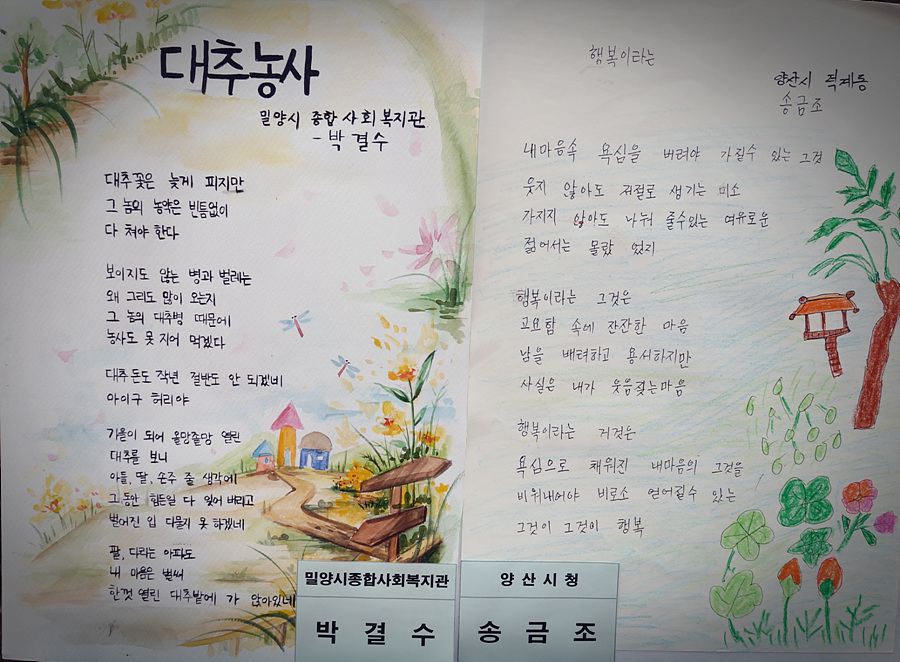 대추농사
밀양시 종합사회복지관
- 박 결 수
대추꽃은 늦게 피지만
그 놈의 농약은 빈틈없이
다 쳐야 한다
보이지도 않는 병과 벌레는
왜 그리도 많이 오는지
그 놈의 대추병 때문에
농사도 못 지어 먹겠다
대추 돈도 작년 절반도 안 되겠네
아이구 허리야
가을이 되어 올망졸망 열린
대추를 보니
아들, 딸, 손주 줄 생각에
그 동안 힘든일 다 잊어 버리고
벌어진 입 다물지 못 하겠네
팔, 다리는 아파도
내 마음은 벌써
한껏 열린 대추밭에 가 앉아있네
밀양시종합사회복지관
박 결 수
행복이라는
양산시 덕계동
송금조
내마음속 욕심을 버려야 가질수 있는 그것
웃지 않아도 저절로 생기는 미소
가지지 않아도 나눠 줄수있는 여유로운
젊어서는 몰랐 었지
행복이라는 그것은
고요함 속에 잔잔한 마음
남을 배려하고 용서하지만
사실은 내가 웃음짓는마음
행복이라는 거것은
욕심으로 채워진 내마음의 그것을
비워내어야 비로소 얻어질수 있는
그것이 그것이 행복
양 산 시 청
송 금 조